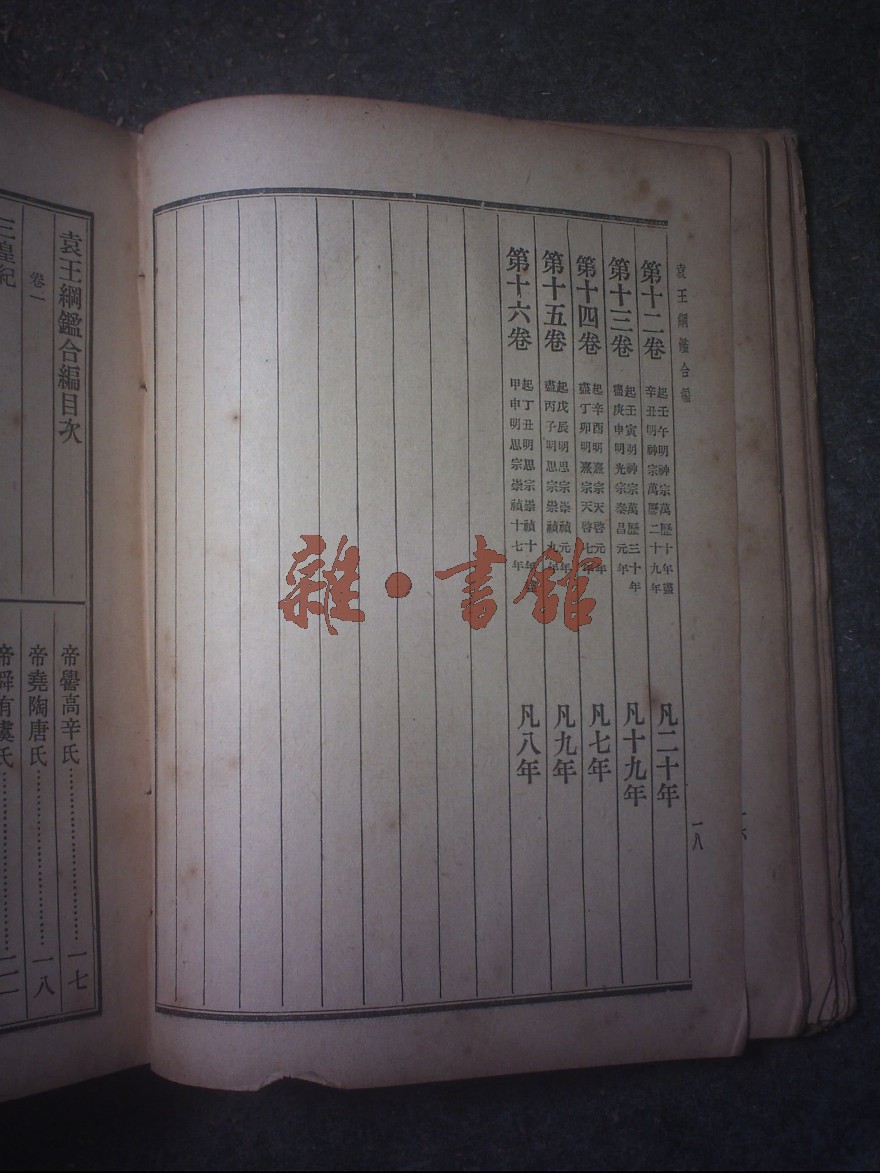 袁王綱鑑合編
第十二卷 起壬午明神宗萬歷十年盡
辛丑明神宗萬歷二十九年 凡二十年
第十三卷 起壬寅明神宗萬歷三十年
盡庚申明光宗泰昌元年 凡十九年
第十四卷 起辛酉明熹宗天啓元年
盡丁卯明熹宗天啓七年 凡七年
第十五卷 起戊辰明思宗崇禎元年
盡丙子明思宗崇禎九年 凡九年
第十六卷 起丁丑明思宗崇禎十年盡
甲申明思宗崇禎十七年 凡八年
一八
雜·書館
袁王綱鑑合編目次
卷一
三皇紀
帝嚳高辛氏 一七
帝堯陶唐氏 一八
帝舜有虞氏
一六